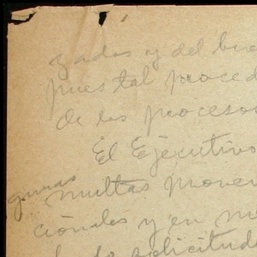 zadas y del bue
pues tal proced
de los procesos
El Ejecutivo
gunas
multas prove
cionales y en nu
solicitud